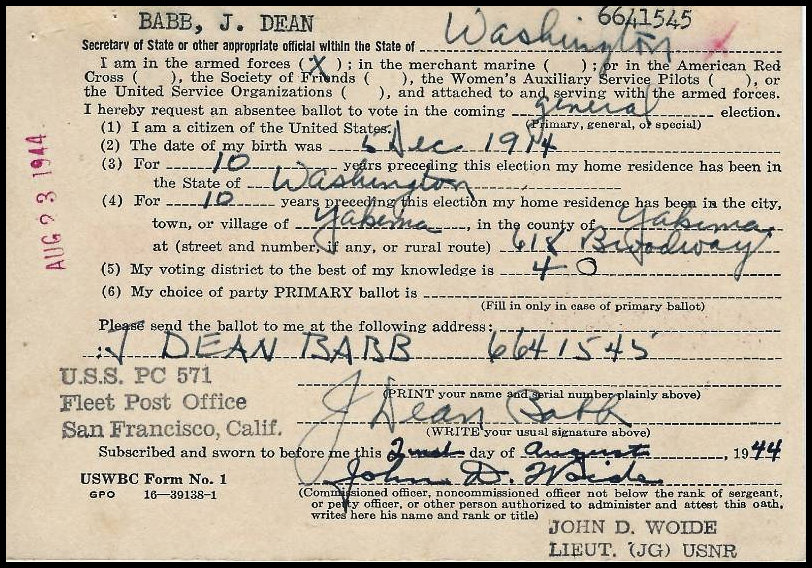 BABB, J. DEAN
6641545
Secretary of State or other appropriate official within the State of Washington x
I am in the armed forces (X); in the merchant marine ( ); or in the American Red
Cross ( ), the Society of Friends ( ), the Women's Auxiliary Service Pilots ( ), or
the United Service Organizations ( ), and attached to and serving with the armed forces.
I hereby request an absentee ballot to vote in the coming general election.
(Primary, general, or special)
(1) I am a citizen of the United States.
(2) The date of my birth was 6 Dec 1914
(3) For 10 years preceding this election my home residence has been in
the State of Washington
(4) For 10 years preceding this election my home residence has been in the city,
town, or village of Yakima, in the county of Yakima,
at (street and number, if any, or rural route) 618 Broadway
(5) My voting district to the best of my knowledge is 40
(6) My choice of party PRIMARY ballot is
(Fill in only in case of primary ballot)
AUG 23 1944
Please send the ballot to me at the following address:
J DEAN BABB 6641545
U.S.S. PC 571
Fleet Post Office
San Francisco, Calif.
(PRINT your name and serial number plainly above)
J Dean Babb
(WRITE your usual signature above)
Subscribed and sworn to before me this 2nd day of August, 1944
John D. Woide
USWBC Form No. 1
GPO 16—39138-1
(Commissioned officer, noncommissioned officer not below the rank of sergeant,
or petty officer, or other person authorized to administer and attest this oath,
writes here his name and rank or title)
JOHN D. WOIDE
LIEUT. (JG) USNR